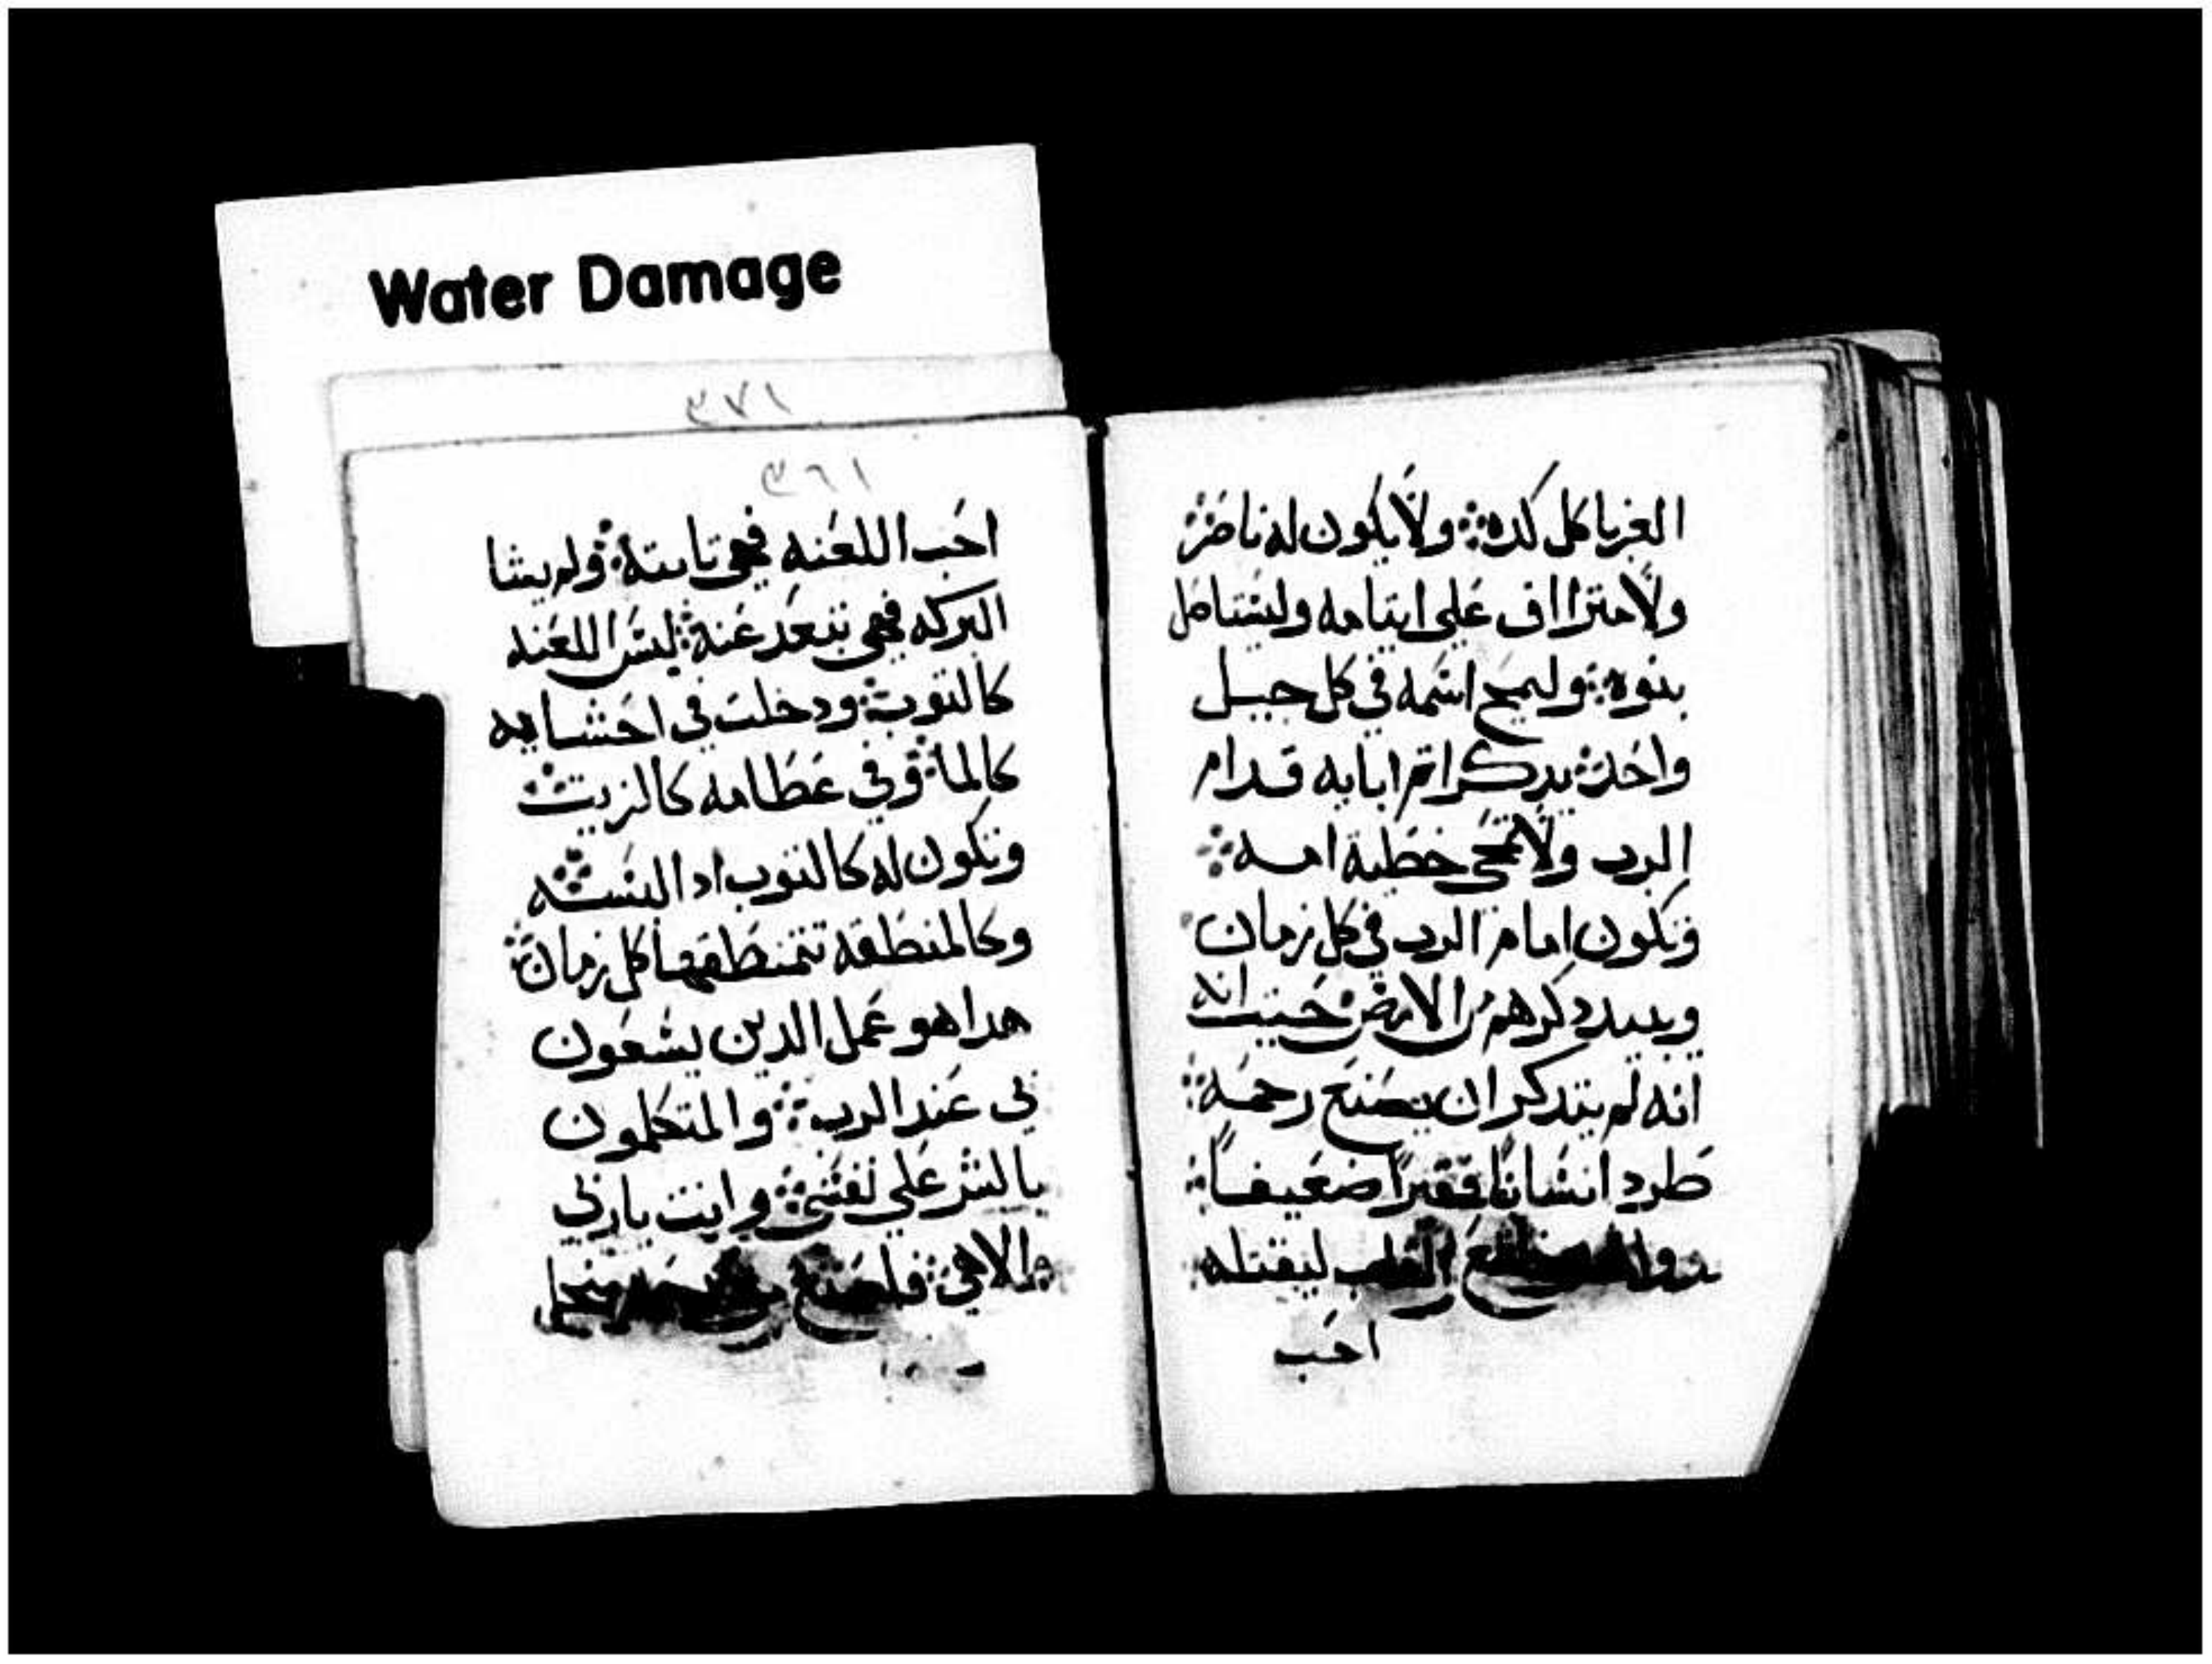 Water Damage
٣٧١
٣٦١
الغربا كل كده ولا يكون له ناصر
ولا متراف على ايتامه وليستاصل
بنوه وليمح اسمه في كل جيل
واحد يدكر اتم ابايه قدام
الرب ولا تمحي خطية امه
وتكون امام الرب في كل زمان
ويبيد دكرهم من الارض حيت انه
انه لم يتدكر ان يصنع رحمه
طرد انسانا فقيرا ضعيفا
القلب ليقتله
احب
احب اللعنه فهي تاىىته ولم يشا
البركه فهي تتبعد عنه لبس اللعنه
كالتوب ودخلت في احشايه
كالما وفي عظامه كالزيت
وتكون له كالتوب ادا البسه
وكالمنطقه تتمنطق بها كل زمان
هدا هو عمل الدين يسعون
بي عند الرب والمتكلمون
بالشر علي نفسي وانت ياربي
الاهي فاصنع منجل